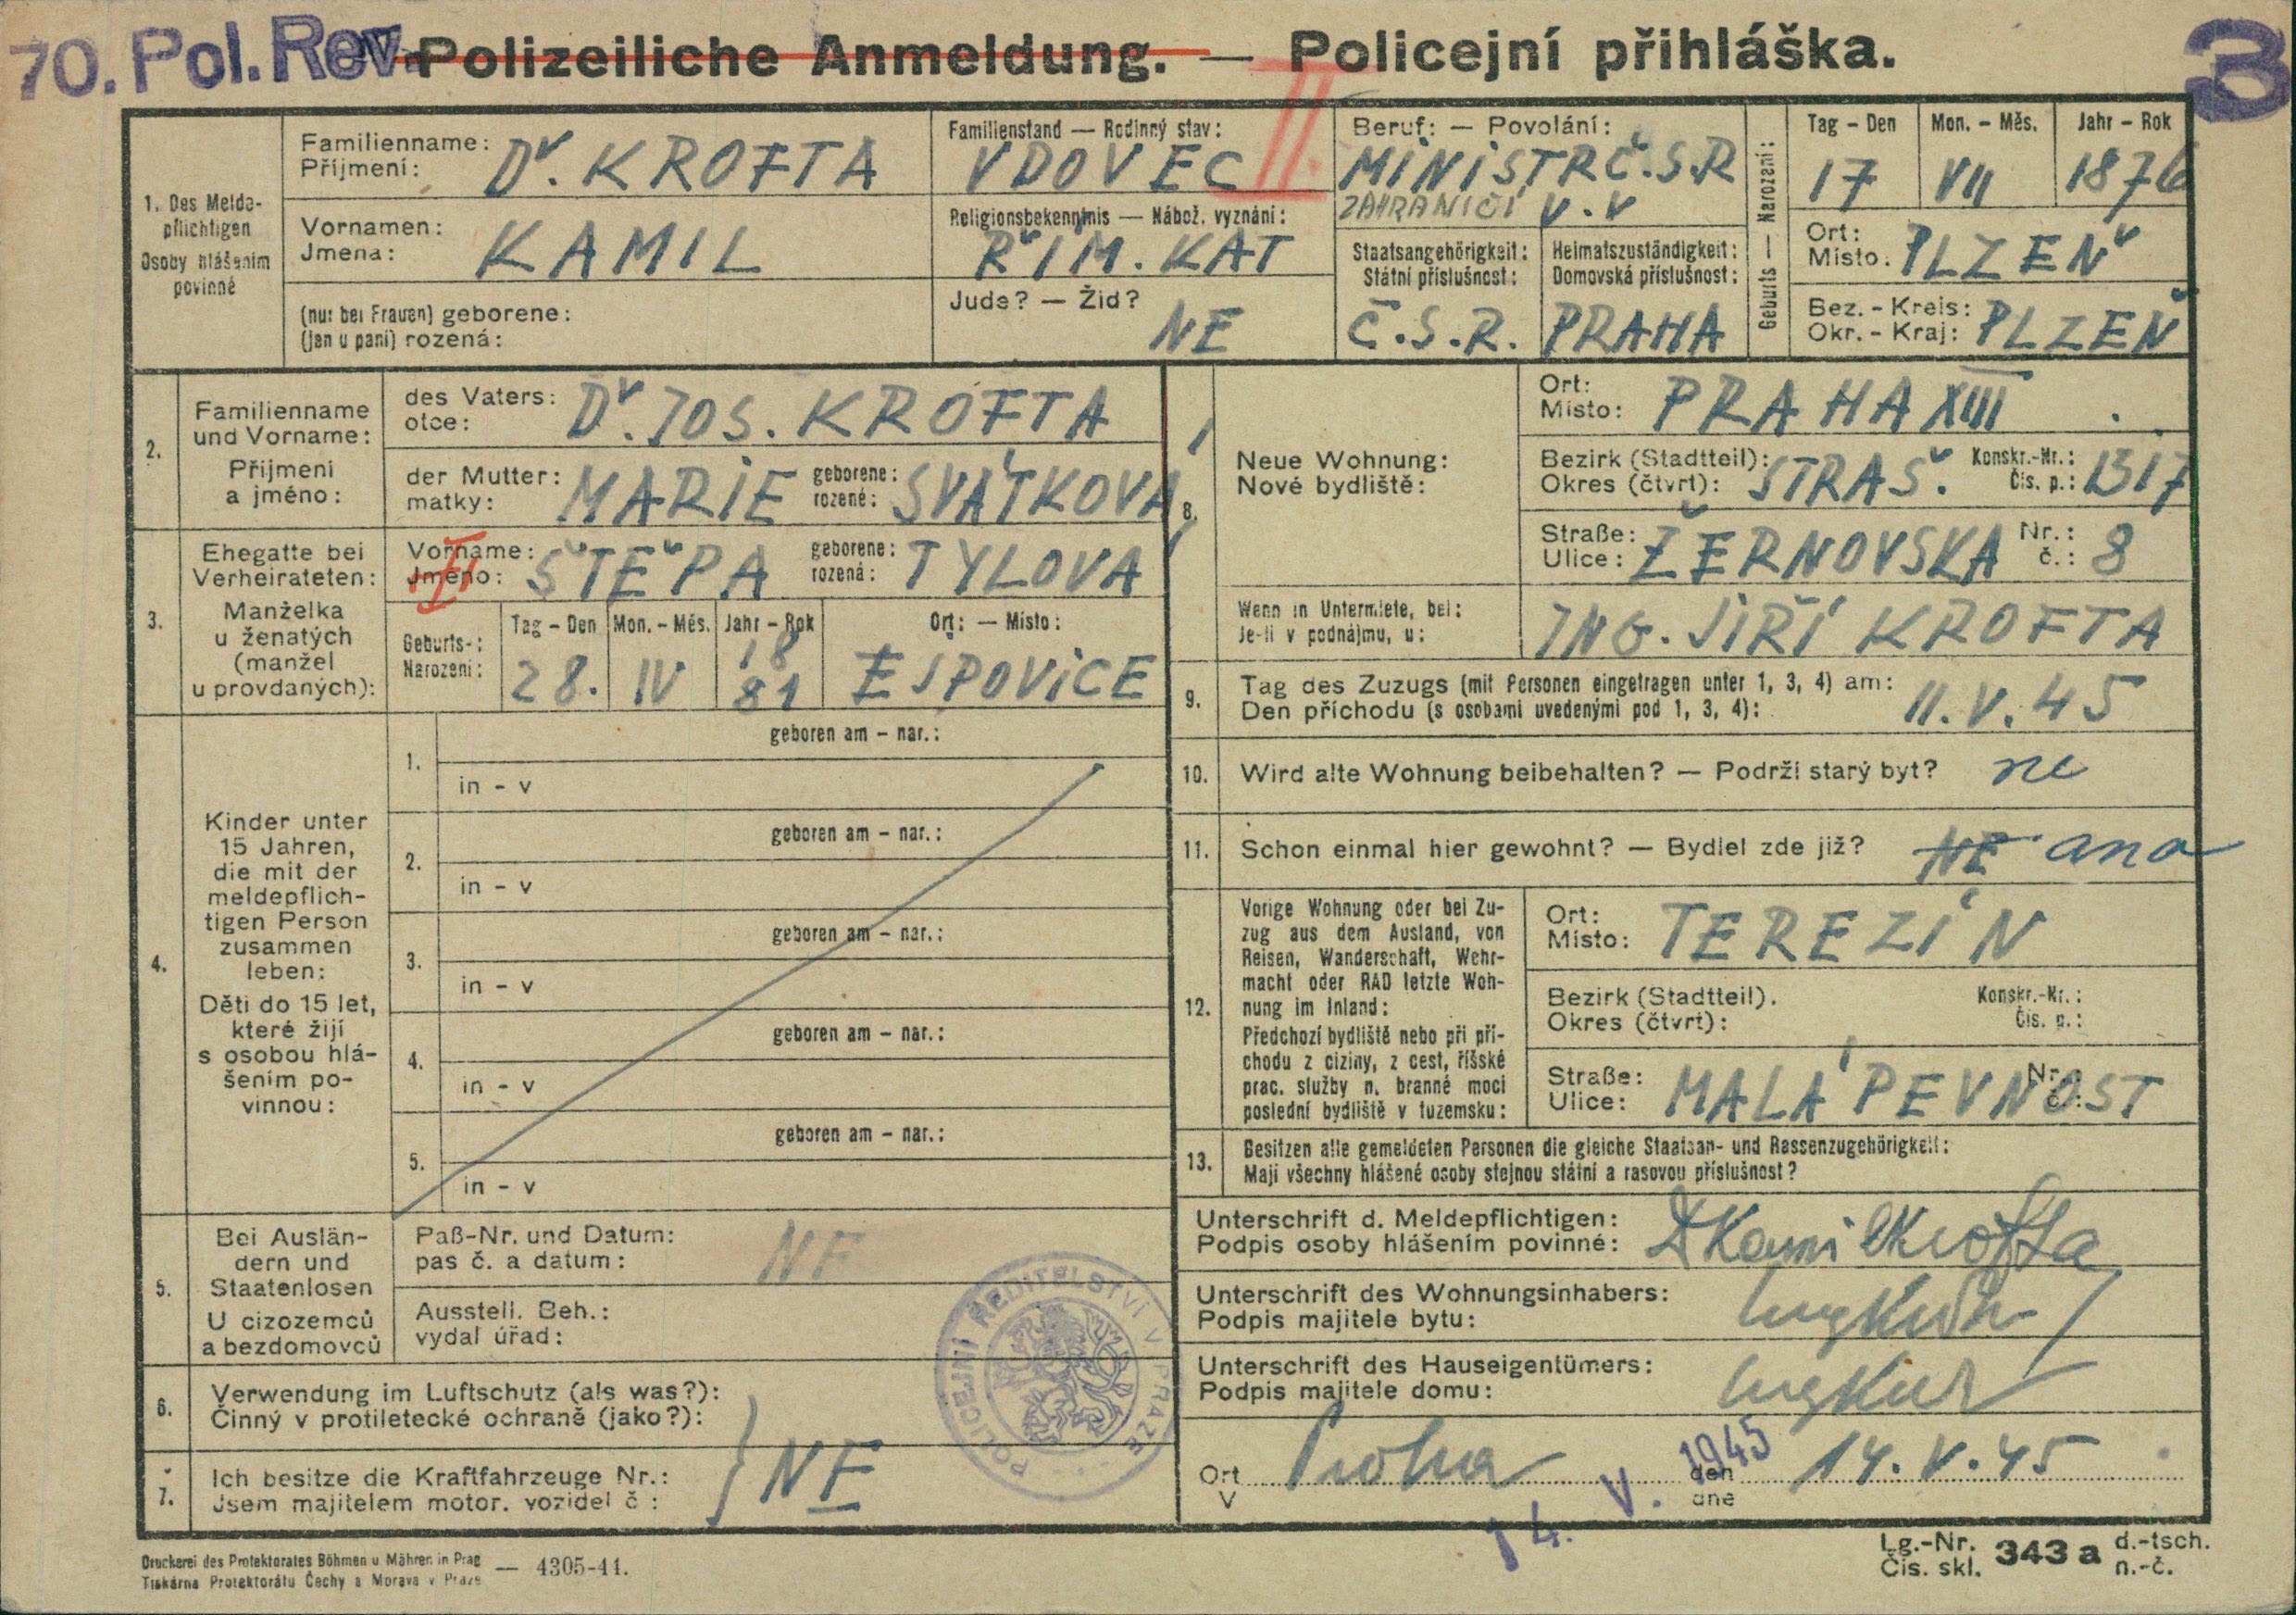 70. Pol. Rev.
Polizeiliche Anmeldung. — Policejní přihláška.
3
II.
1. Des Melde-
pflichtigen
Osoby hlášením
povinné
Familienname:
Příjmení: Dr. KROFTA
Vornamen:
Jména: KAMIL
(nur bei Frauen) geborene:
(jen u paní) rozená:
Familienstand — Rodinný stav:
VDOVEC
Religionsbekenntnis — Nábož. vyznání:
ŘÍM. KAT
Jude? — Žid?
NE
Beruf: — Povolání:
MINISTR Č.S.R
ZAHRANIČÍ V.V
Staatsangehörigkeit:
Státní příslušnost:
Č.S.R.
Heimatszuständigkeit:
Domovská příslušnost:
PRAHA
Geburts — Narození:
Tag – Den Mon. – Měs. Jahr – Rok
17 VII 1876
Ort:
Místo: PLZEŇ
Bez. - Kreis:
Okr. - Kraj: PLZEŇ
2.
Familienname
und Vorname:
Příjmení
a jméno:
des Vaters:
otce: Dr. JOS. KROFTA
der Mutter:
matky: MARIE
geborene:
rozené: SVÁTKOVÁ
3.
Ehegatte bei
Verheirateten:
Manželka
u ženatých
(manžel
u provdaných):
Vorname:
Jméno: ŠTĚPA
geborene:
rozená: TYLOVA
Geburts-:
Narození:
Tag – Den Mon. – Měs. Jahr – Rok Ort: — Místo:
28. IV 1881 EJPOVICE
4.
Kinder unter
15 Jahren,
die mit der
meldepflich-
tigen Person
zusammen
leben:
Děti do 15 let,
které žijí
s osobou hlá-
šením po-
vinnou:
1. geboren am – nar.:
in – v
2. geboren am – nar.:
in – v
3. geboren am – nar.:
in – v
4. geboren am – nar.:
in – v
5. geboren am – nar.:
in – v
5.
Bei Auslän-
dern und
Staatenlosen
U cizozemců
a bezdomovců
Paß-Nr. und Datum:
pas č. a datum: NE
Ausstell. Beh.:
vydal úřad:
POLICEJNÍ ŘEDITELSTVÍ V PRAZE
6. Verwendung im Luftschutz (als was?):
Činný v protiletecké ochraně (jako?):
7. Ich besitze die Kraftfahrzeuge Nr.:
Jsem majitelem motor. vozidel č:
NE
8.
Neue Wohnung:
Nové bydliště:
Ort:
Místo: PRAHA XIII
Bezirk (Stadtteil):
Okres (čtvrt): STRAŠ.
Konskr.-Nr.:
Čís. p.: 1317
Straße:
Ulice: ŽERNOVSKA
Nr.:
č.: 8
Wenn in Untermiete, bei:
Je-li v podnájmu, u: ING. JIŘÍ KROFTA
9. Tag des Zuzugs (mit Personen eingetragen unter 1, 3, 4) am:
Den příchodu (s osobami uvedenými pod 1, 3, 4): 11. V. 45
10. Wird alte Wohnung beibehalten? — Podrží starý byt? ne
11. Schon einmal hier gewohnt? — Bydlel zde již? NE ano
12.
Vorige Wohnung oder bei Zu-
zug aus dem Ausland, von
Reisen, Wanderschaft, Wehr-
macht oder RAD letzte Woh-
nung im Inland:
Předchozí bydliště nebo při pří-
chodu z ciziny, z cest, říšské
prac. služby n. branné moci
poslední bydliště v tuzemsku:
Ort:
Místo: TEREZÍN
Bezirk (Stadtteil).
Okres (čtvrt):
Konskr.-Nr.:
Čís. p.:
Straße:
Ulice: MALÁ PEVNOST
Nr.
č.:
13. Besitzen alle gemeldeten Personen die gleiche Staatsan- und Rassenzugehörigkeit:
Mají všechny hlášené osoby stejnou státní a rasovou příslušnost?
Unterschrift d. Meldepflichtigen:
Podpis osoby hlášením povinné: Dr Kamil Krofta
Unterschrift des Wohnungsinhabers:
Podpis majitele bytu:
Unterschrift des Hauseigentümers:
Podpis majitele domu:
Ort Praha den 14. V. 45
V dne
14. V. 1945
Druckerei des Protektorates Böhmen u. Mähren in Prag
Tiskárna Protektorátu Čechy a Morava v Praze — 4305-41.
Lg.-Nr. 343 a d.-tsch.
Čís. skl. n.-č.